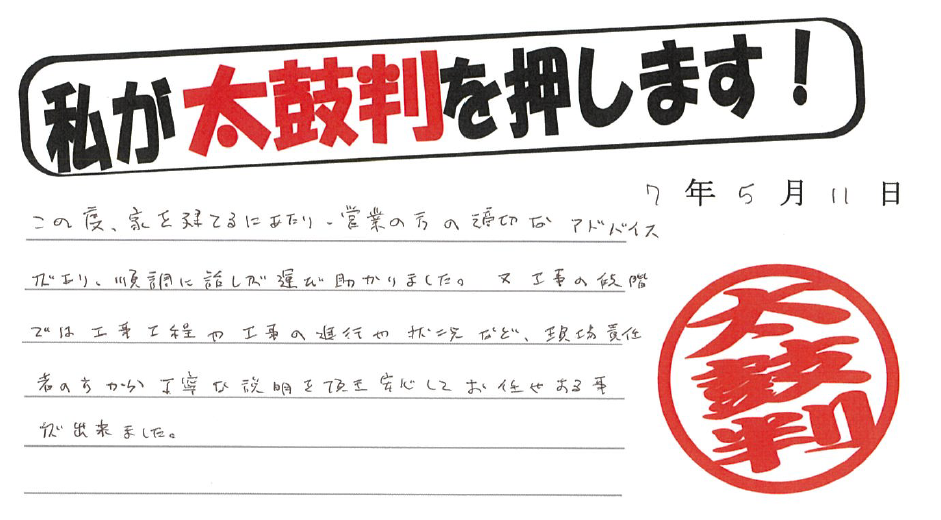 私が太鼓判を押します！
7年5月11日
この度、家を建てるにあたり、営業の方の適切なアドバイス
があり、順調に話しが運び助かりました。又工事の段階
では工事工程や工事の進行や状況など、現場責任
者の方から丁寧な説明を頂き安心してお任せする事
が出来ました。
太鼓判